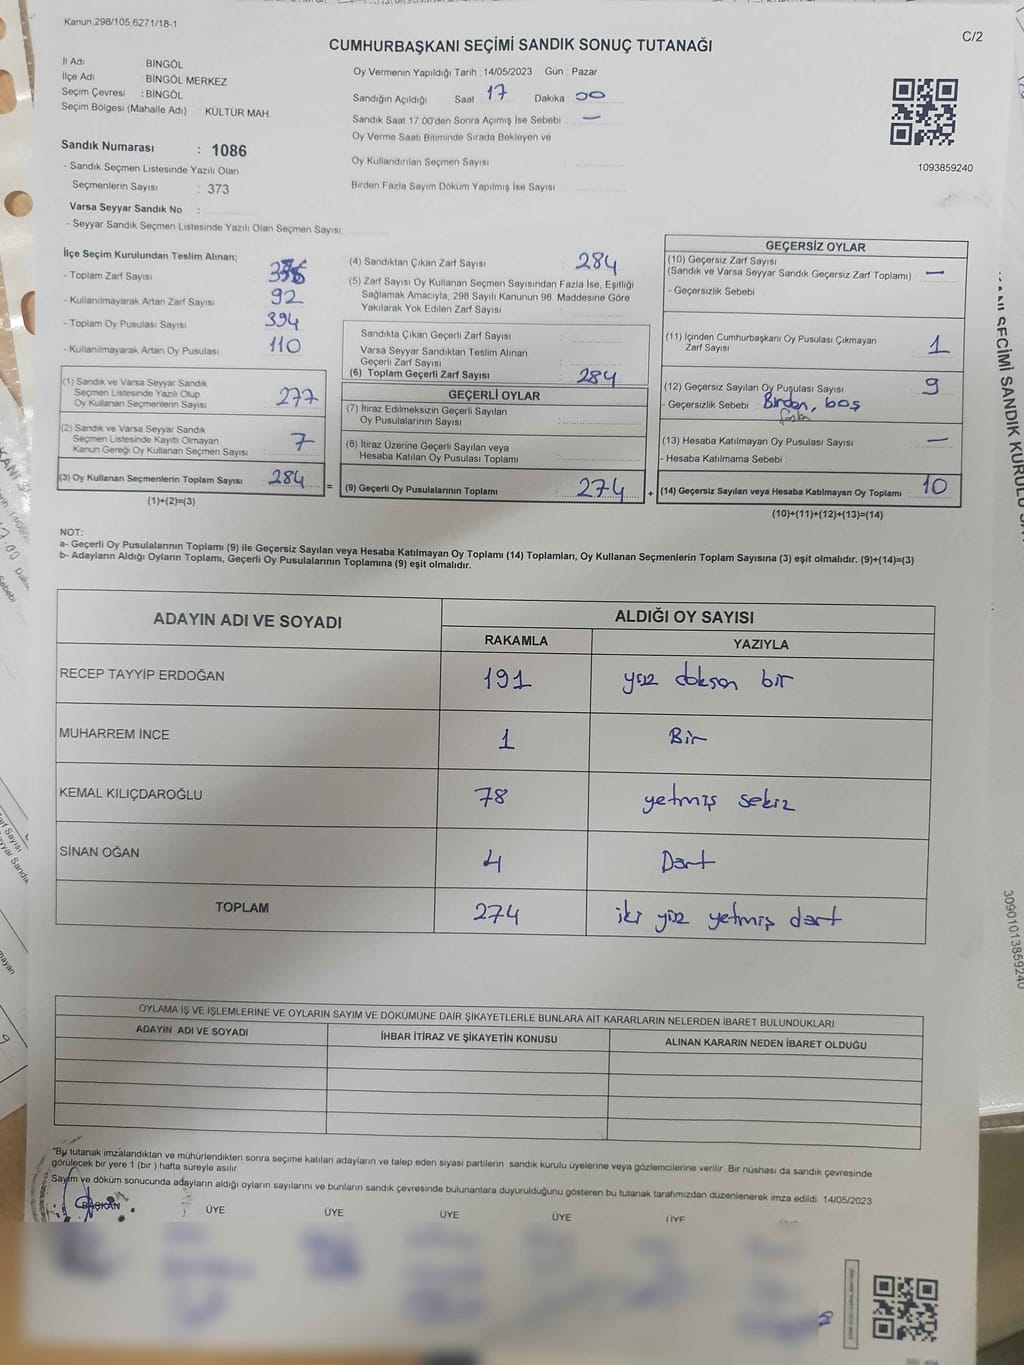 Kanun,298/105,6271/18-1
C/2
CUMHURBAŞKANI SEÇİMİ SANDIK SONUÇ TUTANAĞI
İl Adı BİNGÖL
İlçe Adı : BİNGÖL MERKEZ
Seçim Çevresi : BİNGÖL
Seçim Bölgesi (Mahalle Adı) : KÜLTÜR MAH
Sandık Numarası : 1086
- Sandık Seçmen Listesinde Yazılı Olan
Seçmenlerin Sayısı : 373
Varsa Seyyar Sandık No :
- Seyyar Sandık Seçmen Listesinde Yazılı Olan Seçmen Sayısı
Oy Vermenin Yapıldığı Tarih : 14/05/2023 Gün : Pazar
Sandığın Açıldığı Saat 17 Dakika : 00
Sandık Saat 17:00'den Sonra Açımış İse Sebebi : —
Oy Verme Saati Bitiminde Sırada Bekleyen ve
Oy Kullandırılan Seçmen Sayısı
Birden Fazla Sayım Döküm Yapılmış İse Sayısı :
1093859240
İlçe Seçim Kurulundan Teslim Alınan;
- Toplam Zarf Sayısı
- Kullanılmayarak Artan Zarf Sayısı : 92
- Toplam Oy Pusulası Sayısı : 394
- Kullanılmayarak Artan Oy Pusulası : 110
(1) Sandık ve Varsa Seyyar Sandık
Seçmen Listesinde Yazılı Olup
Oy Kullanan Seçmenlerin Sayısı : 277
(2) Sandık ve Varsa Seyyar Sandık
Seçmen Listesinde Kayıtlı Olmayan
Kanun Gereği Oy Kullanan Seçmen Sayısı : 7
(3) Oy Kullanan Seçmenlerin Toplam Sayısı : 284
(1)+(2)=(3)
=
(4) Sandıktan Çıkan Zarf Sayısı : 284
(5) Zarf Sayısı Oy Kullanan Seçmen Sayısından Fazla İse, Eşitliği
Sağlamak Amacıyla, 298 Sayılı Kanunun 98. Maddesine Göre
Yakılarak Yok Edilen Zarf Sayısı :
Sandıkta Çıkan Geçerli Zarf Sayısı :
Varsa Seyyar Sandıktan Teslim Alınan
Geçerli Zarf Sayısı :
(6) Toplam Geçerli Zarf Sayısı : 284
GEÇERLİ OYLAR
(7) İtiraz Edilmeksizin Geçerli Sayılan
Oy Pusulalarının Sayısı :
(8) İtiraz Üzerine Geçerli Sayılan veya
Hesaba Katılan Oy Pusulası Toplamı :
(9) Geçerli Oy Pusulalarının Toplamı : 274
+
GEÇERSİZ OYLAR
(10) Geçersiz Zarf Sayısı
(Sandık ve Varsa Seyyar Sandık Geçersiz Zarf Toplamı) : —
- Geçersizlik Sebebi :
(11) İçinden Cumhurbaşkanı Oy Pusulası Çıkmayan
Zarf Sayısı : 1
(12) Geçersiz Sayılan Oy Pusulası Sayısı : 9
- Geçersizlik Sebebi : Birden, boş
fazla
(13) Hesaba Katılmayan Oy Pusulası Sayısı : —
- Hesaba Katılmama Sebebi :
(14) Geçersiz Sayılan veya Hesaba Katılmayan Oy Toplamı : 10
(10)+(11)+(12)+(13)=(14)
NOT:
a- Geçerli Oy Pusulalarının Toplamı (9) ile Geçersiz Sayılan veya Hesaba Katılmayan Oy Toplamı (14) Toplamları, Oy Kullanan Seçmenlerin Toplam Sayısına (3) eşit olmalıdır. (9)+(14)=(3)
b- Adayların Aldığı Oyların Toplamı, Geçerli Oy Pusulalarının Toplamına (9) eşit olmalıdır.
ADAYIN ADI VE SOYADI
ALDIĞI OY SAYISI
RAKAMLA YAZIYLA
RECEP TAYYİP ERDOĞAN 191 yüz doksan bir
MUHARREM İNCE 1 Bir
KEMAL KILIÇDAROĞLU 78 yetmiş sekiz
SİNAN OĞAN 4 Dört
TOPLAM 274 iki yüz yetmiş dört
OYLAMA İŞ VE İŞLEMLERİNE VE OYLARIN SAYIM VE DÖKÜMÜNE DAİR ŞİKAYETLERLE BUNLARA AİT KARARLARIN NELERDEN İBARET BULUNDUKLARI
ADAYIN ADI VE SOYADI İHBAR İTİRAZ VE ŞİKAYETİN KONUSU ALINAN KARARIN NEDEN İBARET OLDUĞU
"Bu tutanak imzalandıktan ve mühürlendikten sonra seçime katılan adayların ve talep eden siyasi partilerin sandık kurulu üyelerine veya gözlemcilerine verilir. Bir nüshası da sandık çevresinde
görülecek bir yere 1 (bir ) hafta süreyle asılır.
Sayım ve döküm sonucunda adayların aldığı oyların sayılarını ve bunların sandık çevresinde bulunanlara duyurulduğunu gösteren bu tutanak tarafımızdan düzenlenerek imza edildi. 14/05/2023
BAŞKAN ÜYE ÜYE ÜYE ÜYE ÜYE
30901013859240